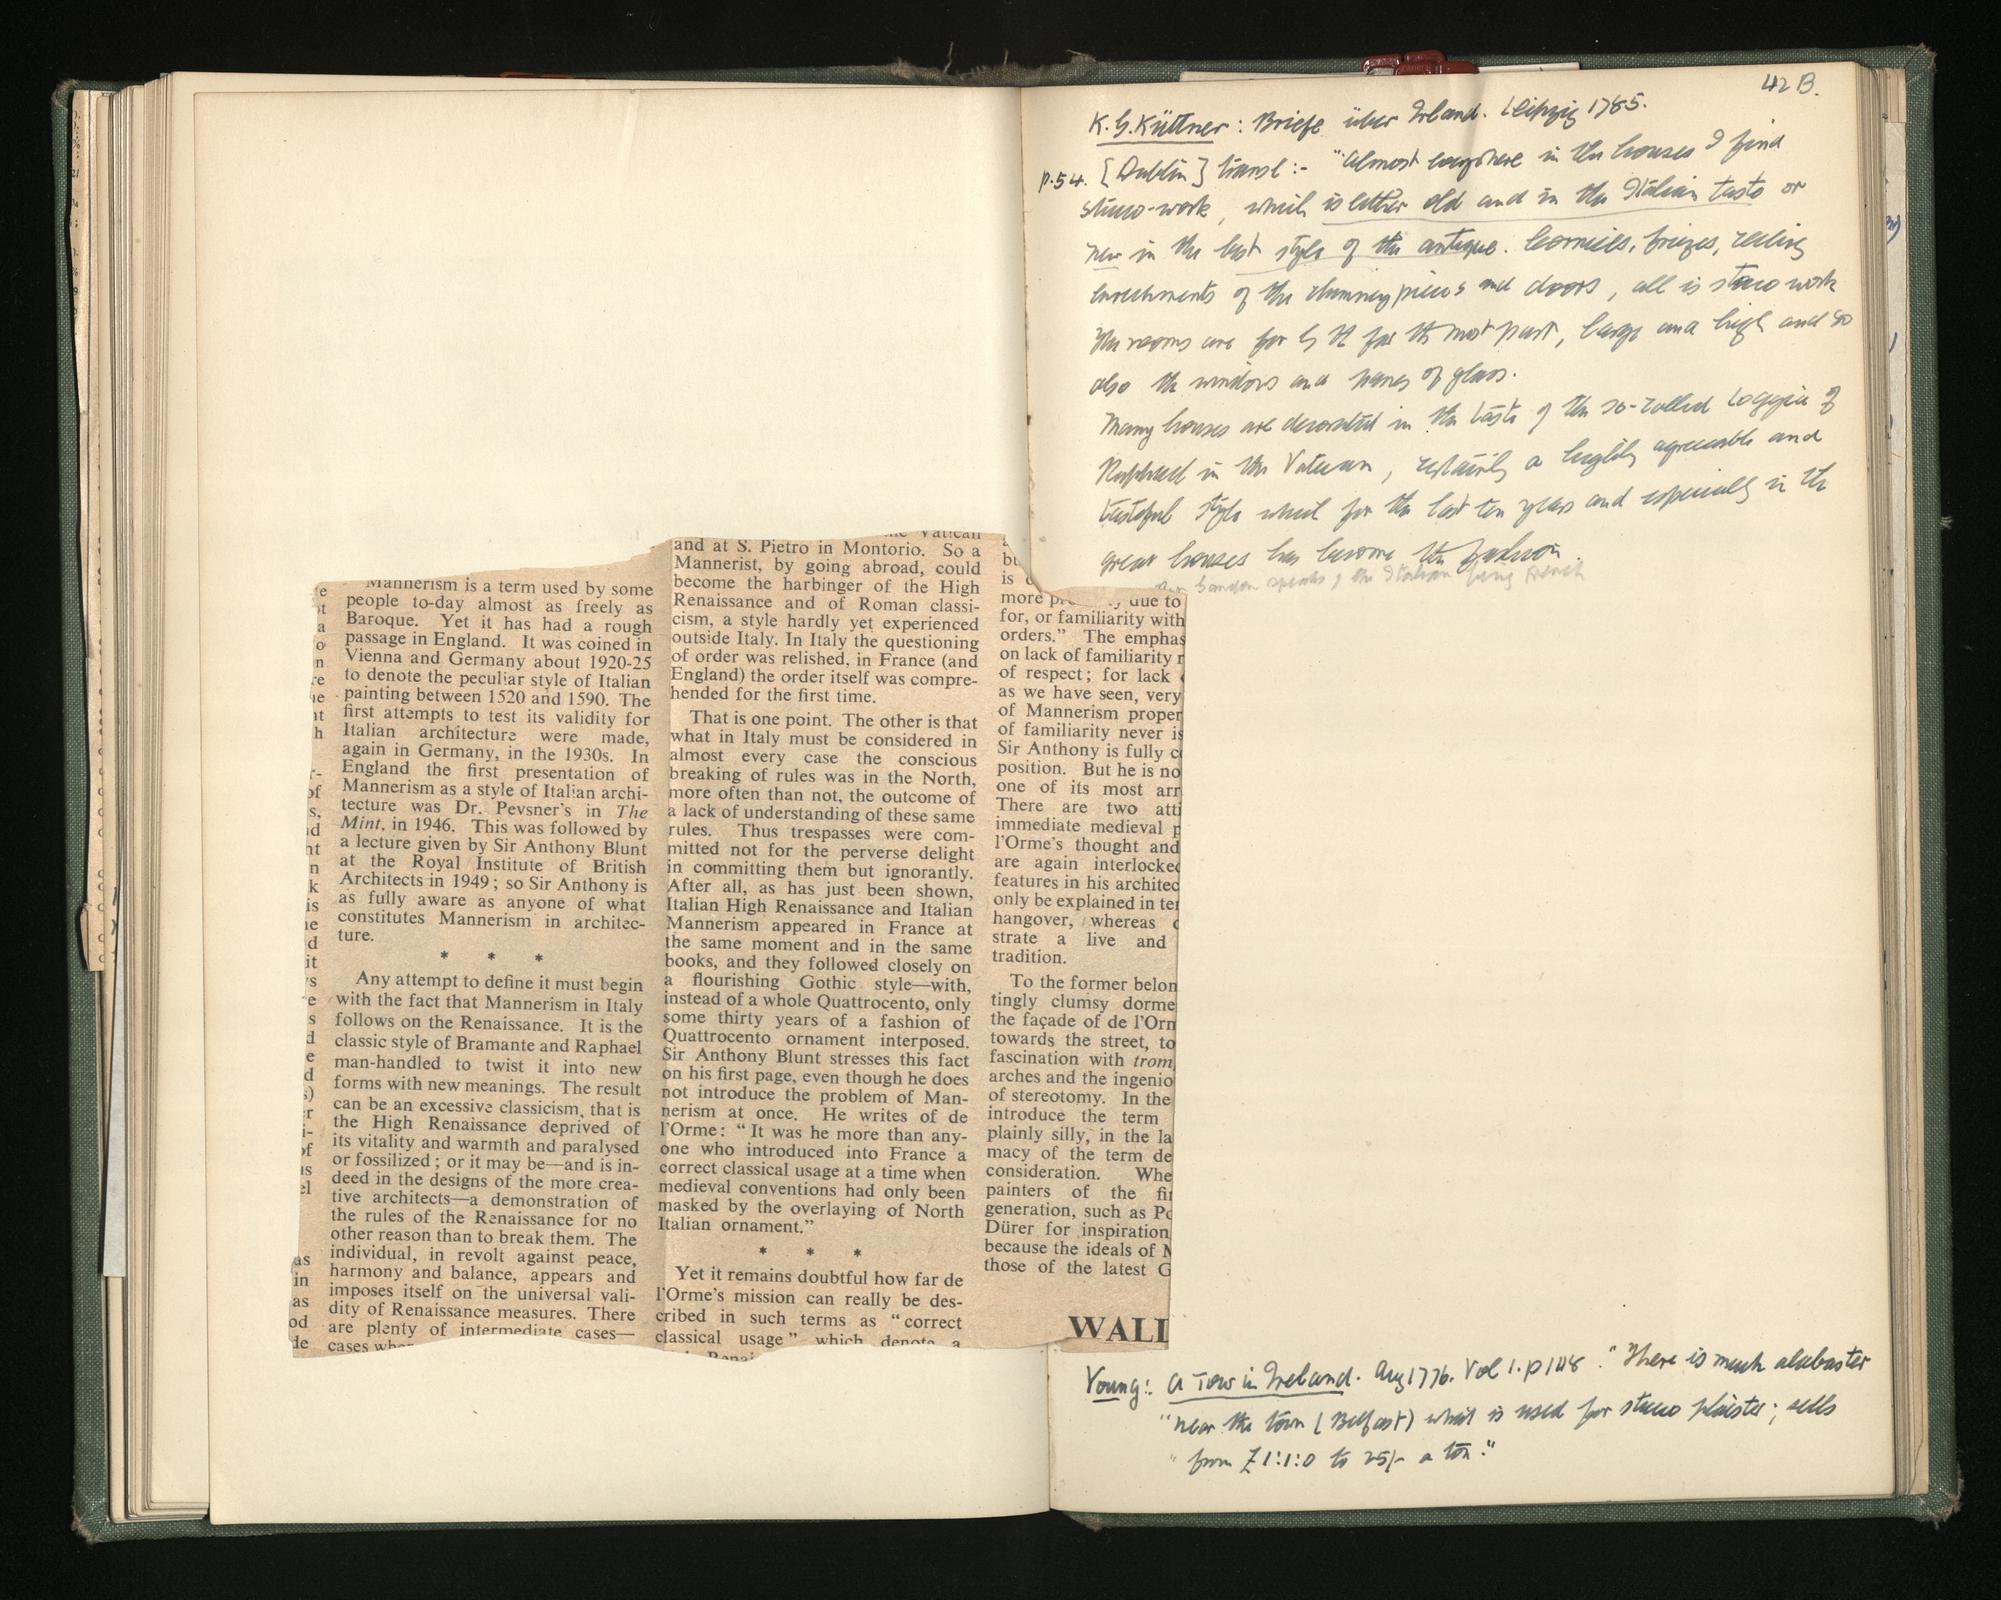 42 B.
K. G. Küttner: Briefe über Irland. Leipzig 1785.
p.54. [Dublin] transl:- "Almost everywhere in the houses I find
stucco-work, which is either old and in the Italian taste or
new in the best style of the antique. Cornices, friezes, ceiling
enrichments of the chimney pieces and doors, all is stucco work
The rooms are for the most part, large and high and so
also the windows and panes of glass.
Many houses are decorated in the taste of the so-called Loggia of
Raphael in the Vatican, certainly a highly agreeable and
tasteful style which for the last ten years and especially in the
great houses has become the fashion.
speaks of the Italian being French
Mannerism is a term used by some
people to-day almost as freely as
Baroque. Yet it has had a rough
passage in England. It was coined in
Vienna and Germany about 1920-25
to denote the peculiar style of Italian
painting between 1520 and 1590. The
first attempts to test its validity for
Italian architecture were made,
again in Germany, in the 1930s. In
England the first presentation of
Mannerism as a style of Italian archi-
tecture was Dr. Pevsner's in The
Mint, in 1946. This was followed by
a lecture given by Sir Anthony Blunt
at the Royal Institute of British
Architects in 1949; so Sir Anthony is
as fully aware as anyone of what
constitutes Mannerism in architec-
ture.
* * *
Any attempt to define it must begin
with the fact that Mannerism in Italy
follows on the Renaissance. It is the
classic style of Bramante and Raphael
man-handled to twist it into new
forms with new meanings. The result
can be an excessive classicism, that is
the High Renaissance deprived of
its vitality and warmth and paralysed
or fossilized; or it may be—and is in-
deed in the designs of the more crea-
tive architects—a demonstration of
the rules of the Renaissance for no
other reason than to break them. The
individual, in revolt against peace,
harmony and balance, appears and
imposes itself on the universal vali-
dity of Renaissance measures. There
are plenty of intermediate cases—
cases wher
the Vatican
and at S. Pietro in Montorio. So a
Mannerist, by going abroad, could
become the harbinger of the High
Renaissance and of Roman classi-
cism, a style hardly yet experienced
outside Italy. In Italy the questioning
of order was relished, in France (and
England) the order itself was compre-
hended for the first time.
That is one point. The other is that
what in Italy must be considered in
almost every case the conscious
breaking of rules was in the North,
more often than not, the outcome of
a lack of understanding of these same
rules. Thus trespasses were com-
mitted not for the perverse delight
in committing them but ignorantly.
After all, as has just been shown,
Italian High Renaissance and Italian
Mannerism appeared in France at
the same moment and in the same
books, and they followed closely on
a flourishing Gothic style—with,
instead of a whole Quattrocento, only
some thirty years of a fashion of
Quattrocento ornament interposed.
Sir Anthony Blunt stresses this fact
on his first page, even though he does
not introduce the problem of Man-
nerism at once. He writes of de
l'Orme: "It was he more than any-
one who introduced into France a
correct classical usage at a time when
medieval conventions had only been
masked by the overlaying of North
Italian ornament."
* * *
Yet it remains doubtful how far de
l'Orme's mission can really be des-
cribed in such terms as "correct
classical usage" which denote a
Renai
bu
is
more due to
for, or familiarity with
orders." The emphas
on lack of familiarity r
of respect; for lack
as we have seen, very
of Mannerism proper
of familiarity never is
Sir Anthony is fully c
position. But he is no
one of its most arr
There are two atti
immediate medieval p
l'Orme's thought and
are again interlocked
features in his architec
only be explained in ter
hangover, whereas
strate a live and
tradition.
To the former belon
tingly clumsy dorme
the façade of de l'Orm
towards the street, to
fascination with trom
arches and the ingenio
of stereotomy. In the
introduce the term
plainly silly, in the la
macy of the term de
consideration. Whe
painters of the fir
generation, such as Po
Dürer for inspiration
because the ideals of M
those of the latest G
WALL
Young: A Tour in Ireland. Aug 1776. Vol 1. p 148. "There is much alabaster
"near the town (Belfast) which is used for stucco plaister; sells
"from £1:1:0 to 25/- a ton."